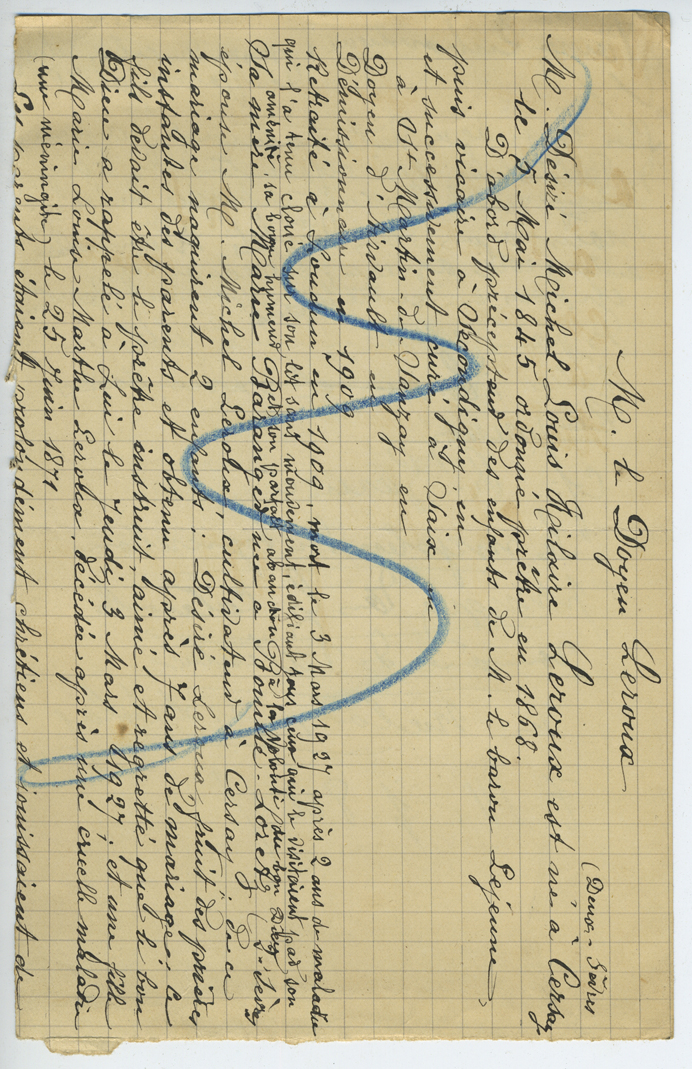 M. le Doyen Leroux
(Deux-Sèvres
M. Désiré Michel Louis Hilaire Leroux est né à Cersay
le 5 Mai 1845 ordonné prêtre en 1868.
D'abord précepteur des enfants de M. le baron Lejeune,
puis vicaire à Secondigny, en
et successivement curé à Saix en
à St Martin-du-Sanzay en
Doyen d'Airvault en
Démissionnaire en 1909
Retraité à Loudun en 1909, mort le 3 Mars 1927 après 2 ans de maladie
qui l'a tenu cloué sur son lit sans mouvement, édifiant tous ceux qui le visitaient par son
aménité, sa bonne humeur et son parfait abandon à la volonté du bon Dieu
Sa mère Marie Baranger née à Bouillé-Loretz (D-Sèvres
épouse M. Michel Leroux, cultivateur à Cersay; de ce
mariage naquirent 2 enfants: Désiré Leroux, fruit des prières
instantes des parents et obtenu après 7 ans de mariage; ce
fils devait être le prêtre instruit, aimé et regretté que le bon
Dieu a rappelé à Lui le Jeudi 3 Mars 1927; et une fille
Marie Louise Marthe Leroux, décédée après une cruelle maladie
(une méningite) le 25 Juin 1871
Les parents étaient profondément chrétiens et jouissaient de